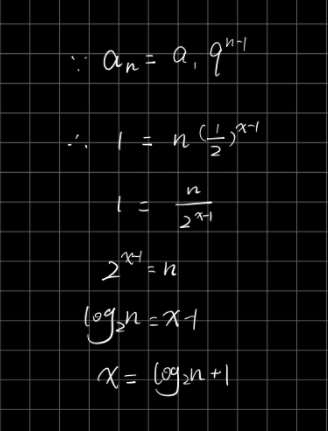 ∵ aₙ = a₁ qⁿ⁻¹
∴ 1 = n (1/2)ˣ⁻¹
1 = n / 2ˣ⁻¹
2ˣ⁻¹ = n
log₂n = x-1
x = log₂n + 1